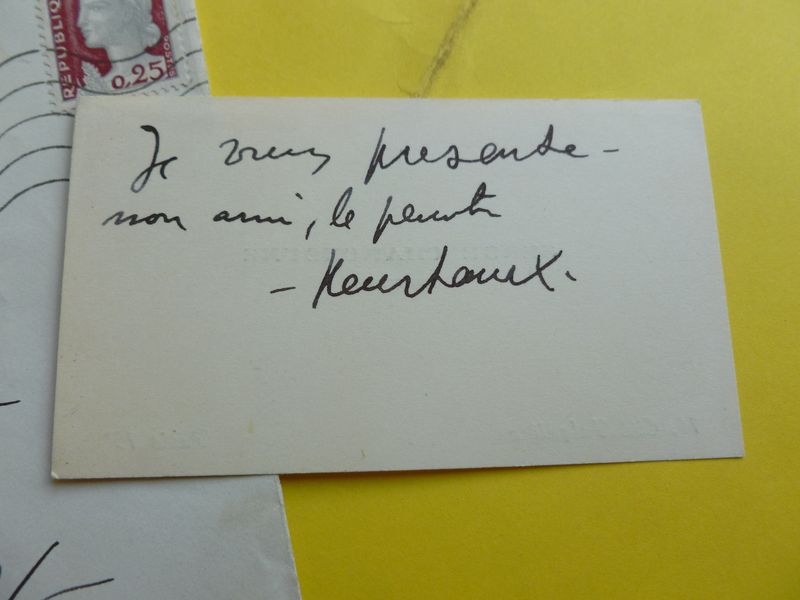 RÉPUBLIQ
0,25
Je vous présente -
mon ami, le peintre
- Heurtaux.